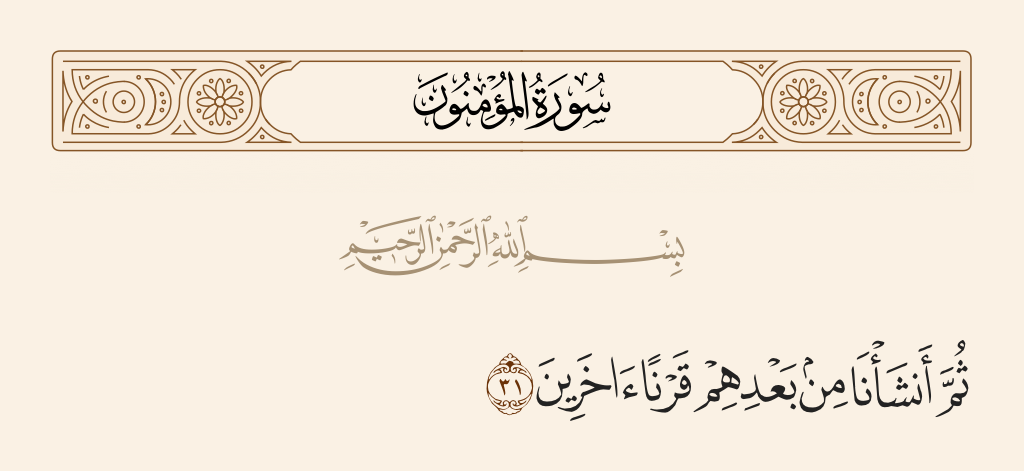 سُورَةُ الْمُؤْمِنُونَ
بِسْمِ اللَّهِ الرَّحْمَٰنِ الرَّحِيمِ
ثُمَّ أَنشَأْنَا مِنۢ بَعْدِهِمْ قَرْنًا ءَاخَرِينَ ٣١